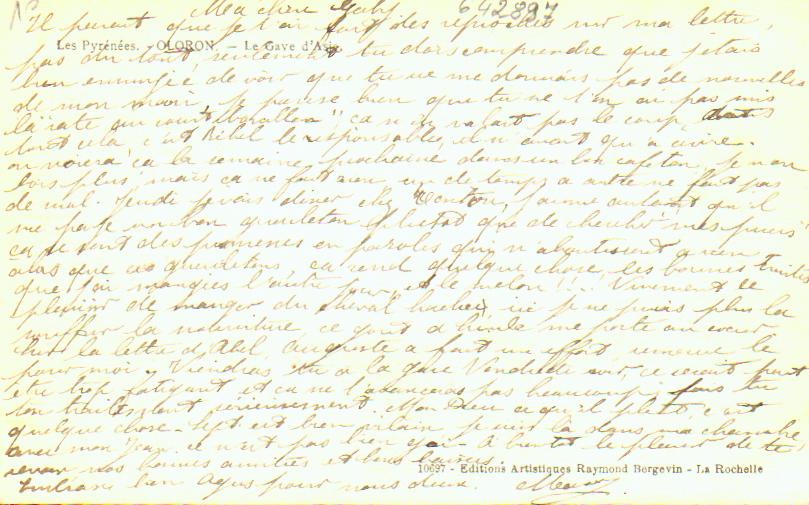 Ma chère Gaby 642897
Il paraît que je t'ai fait des reproches sur ma lettre,
Les Pyrénées. - OLORON. - Le Gave d'Aspe
pas du tout, seulement tu dois comprendre que j'étais
bien ennuyée de voir que tu ne me donnais pas de nouvelles
de mon je pense bien que tu ne l'en ai pas mis
la rate au court bouillon" ça n'en valait pas le coup,
tout cela c'est Abel le responsable, il n'avait qu'à écrire.
on noiera ça la semaine prochaine dans un bon cafeton, je n'en
bois plus mais ça ne fait rien un de temps a autre ne fait pas
de mal. Jeudi je vais diner chez j'aime autant qu'il
me paye un bon gueuleton plutot que de chercher
ce sont des promesses en paroles qui n'aboutissent a rien
alors que ces gueuletons, ça rend quelque chose, les bonnes truites
que j'ai mangées l'autre jour, et le melon !!! Vivement le
plaisir de manger du cheval haché, ici je ne puis plus la
souffrir la nourriture, ce gout d'huile me porte au coeur
la lettre d'Abel, Auguste a fait un effort, remercie le
pour moi. Viendras tu a la gare Vendredi soir, ce serait peut
etre trop fatigant et ça ne t'avancera pas beaucoup, fais
ton sérieusement. Mon Dieu ce qu'il pleut c'est
quelque chose. est bien vilain je suis là dans ma chambre
avec mon Jean. ce n'est pas bien gai. A bientot le plaisir de te
revoir nos bonnes amitiés et bons baisers.
10697 - Editions Artistiques Raymond Bergevin - La Rochelle
Embrasse bien pour nous deux.